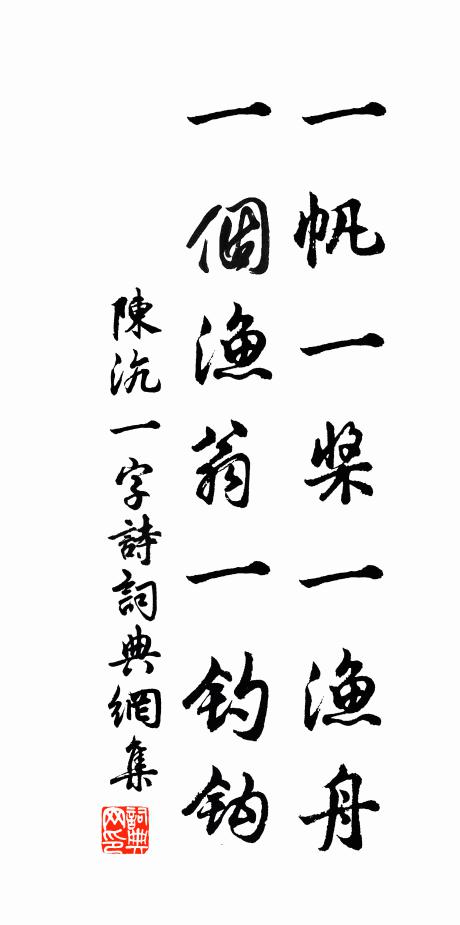 一帆一桨一漁舟
一個漁翁一钓钩
陳沆一字詩詞典網集
詞典网印